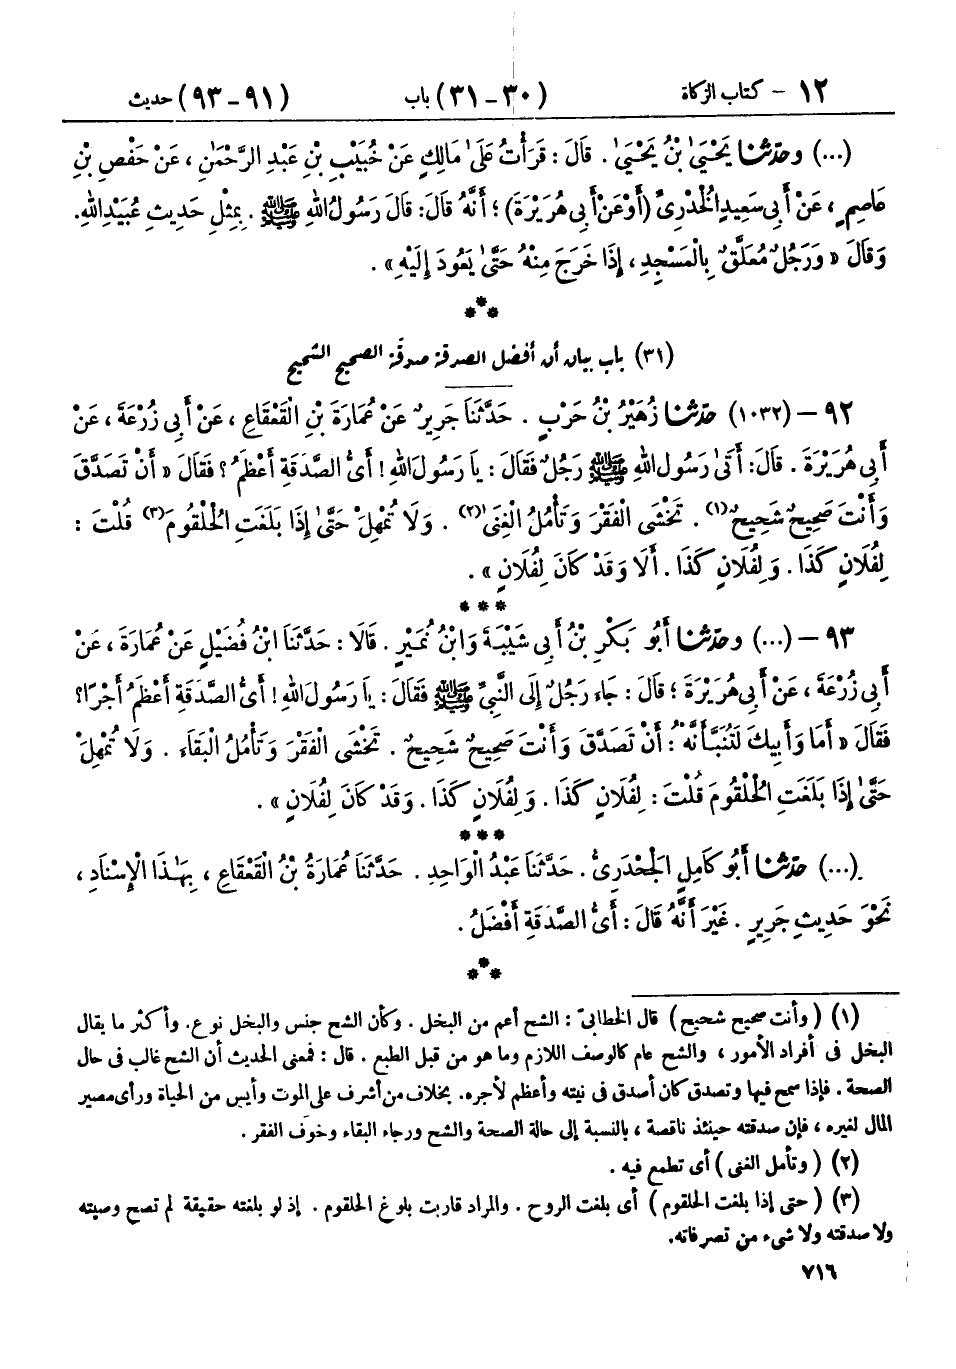 ١٢ - كتاب الزكاة (٣٠-٣١) باب (٩١-٩٣) حديث
(...) وحَدَّثَنَا يَحْيَىٰ بْنُ يَحْيَىٰ . قَالَ : قَرَأْتُ عَلَىٰ مَالِكٍ عَنْ خُبَيْبِ بْنِ عَبْدِ الرَّحْمَٰنِ ، عَنْ حَفْصِ بْنِ
عَاصِمٍ ، عَنْ أَبِي سَعِيدٍ الْخُدْرِيِّ (أَوْ عَنْ أَبِي هُرَيْرَةَ) ؛ أَنَّهُ قَالَ : قَالَ رَسُولُ اللهِ ﷺ . بِمِثْلِ حَدِيثِ عُبَيْدِ اللهِ.
وَقَالَ « وَرَجُلٌ مُعَلَّقٌ بِالْمَسْجِدِ ، إِذَا خَرَجَ مِنْهُ حَتَّىٰ يَعُودَ إِلَيْهِ » .
***
(٣١) باب بيان أن أفضل الصدقة صدقة الصحيح الشحيح
٩٢ - (١٠٣٢) حَدَّثَنَا زُهَيْرُ بْنُ حَرْبٍ . حَدَّثَنَا جَرِيرٌ عَنْ عُمَارَةَ بْنِ الْقَعْقَاعِ ، عَنْ أَبِي زُرْعَةَ ، عَنْ
أَبِي هُرَيْرَةَ . قَالَ : أَتَىٰ رَسُولَ اللهِ ﷺ رَجُلٌ فَقَالَ : يَا رَسُولَ اللهِ ! أَيُّ الصَّدَقَةِ أَعْظَمُ ؟ فَقَالَ « أَنْ تَصَدَّقَ
وَأَنْتَ صَحِيحٌ شَحِيحٌ(١) . تَخْشَى الْفَقْرَ وَتَأْمُلُ الْغِنَىٰ(٢) . وَلَا تُمْهِلْ حَتَّىٰ إِذَا بَلَغَتِ الْحُلْقُومَ(٣) قُلْتَ :
لِفُلَانٍ كَذَا . وَلِفُلَانٍ كَذَا . أَلَا وَقَدْ كَانَ لِفُلَانٍ » .
***
٩٣ - (...) وحَدَّثَنَا أَبُو بَكْرِ بْنُ أَبِي شَيْبَةَ وَابْنُ نُمَيْرٍ . قَالَا : حَدَّثَنَا ابْنُ فُضَيْلٍ عَنْ عُمَارَةَ ، عَنْ
أَبِي زُرْعَةَ ، عَنْ أَبِي هُرَيْرَةَ ؛ قَالَ : جَاءَ رَجُلٌ إِلَى النَّبِيِّ ﷺ فَقَالَ : يَا رَسُولَ اللهِ ! أَيُّ الصَّدَقَةِ أَعْظَمُ أَجْرًا ؟
فَقَالَ « أَمَا وَأَبِيكَ لَتُنَبَّأَنَّهُ : أَنْ تَصَدَّقَ وَأَنْتَ صَحِيحٌ شَحِيحٌ . تَخْشَى الْفَقْرَ وَتَأْمُلُ الْبَقَاءَ . وَلَا تُمْهِلْ
حَتَّىٰ إِذَا بَلَغَتِ الْحُلْقُومَ قُلْتَ : لِفُلَانٍ كَذَا . وَلِفُلَانٍ كَذَا . وَقَدْ كَانَ لِفُلَانٍ » .
***
(...) حَدَّثَنَا أَبُو كَامِلٍ الْجَحْدَرِيُّ . حَدَّثَنَا عَبْدُ الْوَاحِدِ . حَدَّثَنَا عُمَارَةُ بْنُ الْقَعْقَاعِ ، بِهَٰذَا الْإِسْنَادِ ،
نَحْوَ حَدِيثِ جَرِيرٍ . غَيْرَ أَنَّهُ قَالَ : أَيُّ الصَّدَقَةِ أَفْضَلُ .
***
(١) ( وأنت صحيح شحيح ) قال الخطابيّ : الشح أعم من البخل . وكأن الشح جنس والبخل نوع . وأكثر ما يقال
البخل في أفراد الأمور ، والشح عام كالوصف اللازم وما هو من قبل الطبع . قال : فمعنى الحديث أن الشح غالب في حال
الصحة . فإذا سمح فيها وتصدق كان أصدق في نيته وأعظم لأجره. بخلاف من أشرف على الموت وأيس من الحياة ورأى مصير
المال لغيره ، فإن صدقته حينئذ ناقصة ، بالنسبة إلى حالة الصحة والشح ورجاء البقاء وخوف الفقر .
(٢) ( وتأمل الغنى ) أى تطمع فيه .
(٣) ( حتى إذا بلغت الحلقوم ) أى بلغت الروح . والمراد قاربت بلوغ الحلقوم . إذ لو بلغته حقيقة لم تصح وصيته
ولا صدقته ولا شىء من تصرفاته.
٧١٦